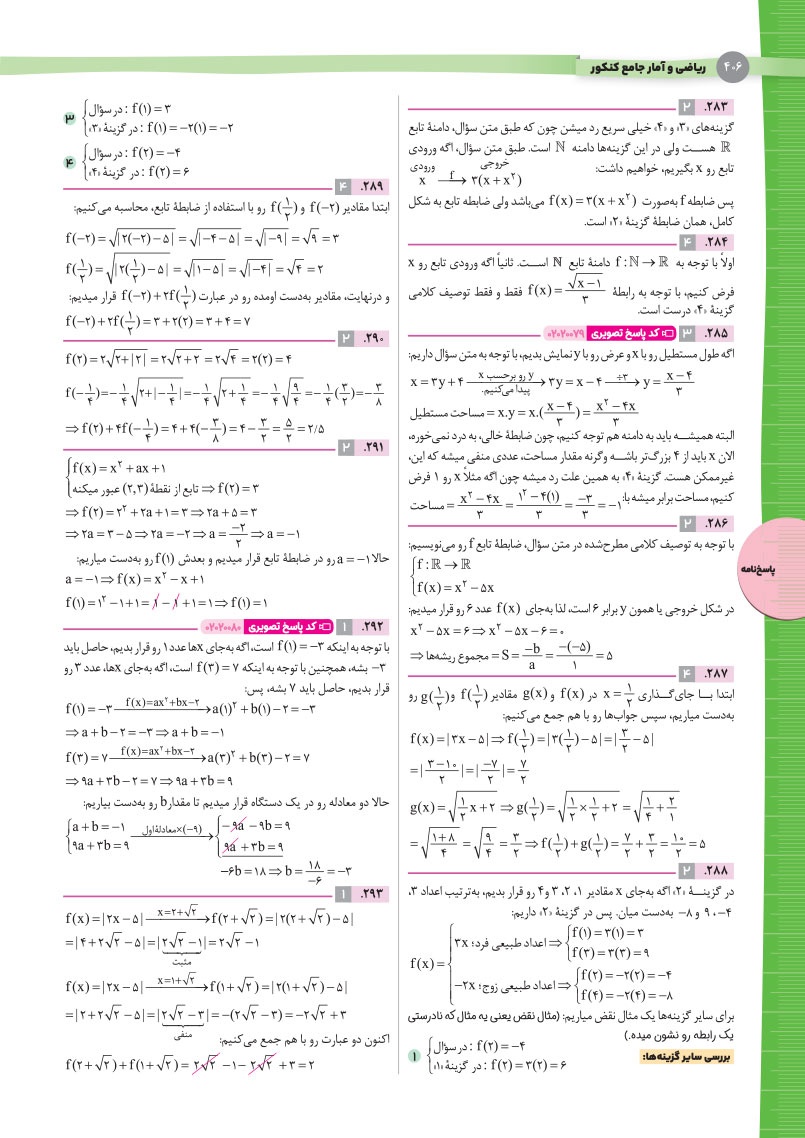 ۴۰۶ ریاضی و آمار جامع کنکور
۲۸۳. ۲
گزینه‌های «۳» و «۴» خیلی سریع رد میشن چون که طبق متن سؤال، دامنهٔ تابع
ℝ هست ولی در این گزینه‌ها دامنه ℕ است. طبق متن سؤال، اگه ورودی
تابع رو x بگیریم، خواهیم داشت:
ورودی x —f→ ۳(x + x²) خروجی
پس ضابطه f به‌صورت f(x) = ۳(x + x²) می‌باشد ولی ضابطه تابع به شکل
کامل، همان ضابطهٔ گزینهٔ «۲» است.
۲۸۴. ۴
اولاً با توجه به f : ℕ → ℝ دامنهٔ تابع ℕ است. ثانیاً اگه ورودی تابع رو x
فرض کنیم، با توجه به رابطهٔ f(x) = √(x−۱)/۳ فقط و فقط توصیف کلامی
گزینهٔ «۴» درست است.
۲۸۵. ۳ کد پاسخ تصویری ۰۲۰۲۰۰۷۹
اگه طول مستطیل رو با x و عرض رو با y نمایش بدیم، با توجه به متن سؤال داریم:
x = ۳y + ۴ —y رو برحسب x پیدا می‌کنیم.→ ۳y = x − ۴ —÷۳→ y = (x−۴)/۳
مساحت مستطیل = x.y = x.((x−۴)/۳) = (x² − ۴x)/۳
البته همیشه باید به دامنه هم توجه کنیم، چون ضابطهٔ خالی، به درد نمی‌خوره،
الان x باید از ۴ بزرگ‌تر باشه وگرنه مقدار مساحت، عددی منفی میشه که این،
غیرممکن هست. گزینهٔ «۴» به همین علت رد میشه چون اگه مثلاً x رو ۱ فرض
کنیم، مساحت برابر میشه با: مساحت = (x² − ۴x)/۳ = (۱² − ۴(۱))/۳ = −۳/۳ = −۱
۲۸۶. ۲
با توجه به توصیف کلامی مطرح‌شده در متن سؤال، ضابطهٔ تابع f رو می‌نویسیم:
f : ℝ → ℝ
f(x) = x² − ۵x
در شکل خروجی یا همون y برابر ۶ است، لذا به‌جای f(x) عدد ۶ رو قرار میدیم:
x² − ۵x = ۶ ⇒ x² − ۵x − ۶ = ۰
⇒ مجموع ریشه‌ها = S = −b/a = −(−۵)/۱ = ۵
۲۸۷. ۴
ابتدا با جای‌گذاری x = ۱/۲ در f(x) و g(x) مقادیر f(۱/۲) و g(۱/۲) رو
به‌دست میاریم، سپس جواب‌ها رو با هم جمع می‌کنیم:
f(x) = |۳x − ۵| ⇒ f(۱/۲) = |۳(۱/۲) − ۵| = |۳/۲ − ۵|
= |(۳−۱۰)/۲| = |−۷/۲| = ۷/۲
g(x) = √(۱/۲ x + ۲) ⇒ g(۱/۲) = √(۱/۲ × ۱/۲ + ۲) = √(۱/۴ + ۲/۱)
= √((۱+۸)/۴) = √(۹/۴) = ۳/۲ ⇒ f(۱/۲) + g(۱/۲) = ۷/۲ + ۳/۲ = ۱۰/۲ = ۵
۲۸۸. ۲
در گزینهٔ «۲» اگه به‌جای x مقادیر ۱، ۲، ۳ و ۴ رو قرار بدیم، به‌ترتیب اعداد ۳،
−۴، ۹ و −۸ به‌دست میان. پس در گزینهٔ «۲» داریم:
f(x) =
۳x ؛ اعداد طبیعی فرد ⇒ f(۱) = ۳(۱) = ۳
f(۳) = ۳(۳) = ۹
−۲x ؛ اعداد طبیعی زوج ⇒ f(۲) = −۲(۲) = −۴
f(۴) = −۲(۴) = −۸
برای سایر گزینه‌ها یک مثال نقض میاریم: (مثال نقض یعنی یه مثال که نادرستی
یک رابطه رو نشون میده.)
بررسی سایر گزینه‌ها:
۱ در سؤال : f(۲) = −۴
در گزینهٔ «۱» : f(۲) = ۳(۲) = ۶
۳ در سؤال : f(۱) = ۳
در گزینهٔ «۳» : f(۱) = −۲(۱) = −۲
۴ در سؤال : f(۲) = −۴
در گزینهٔ «۴» : f(۲) = ۶
۲۸۹. ۴
ابتدا مقادیر f(−۲) و f(۱/۲) رو با استفاده از ضابطهٔ تابع، محاسبه می‌کنیم:
f(−۲) = √|۲(−۲) − ۵| = √|−۴ − ۵| = √|−۹| = √۹ = ۳
f(۱/۲) = √|۲(۱/۲) − ۵| = √|۱ − ۵| = √|−۴| = √۴ = ۲
و درنهایت، مقادیر به‌دست اومده رو در عبارت f(−۲) + ۲f(۱/۲) قرار میدیم:
f(−۲) + ۲f(۱/۲) = ۳ + ۲(۲) = ۳ + ۴ = ۷
۲۹۰. ۲
f(۲) = ۲√(۲+|۲|) = ۲√(۲+۲) = ۲√۴ = ۲(۲) = ۴
f(−۱/۴) = −۱/۴ √(۲+|−۱/۴|) = −۱/۴ √(۲+۱/۴) = −۱/۴ √(۹/۴) = −۱/۴ (۳/۲) = −۳/۸
⇒ f(۲) + ۴f(−۱/۴) = ۴ + ۴(−۳/۸) = ۴ − ۳/۲ = ۵/۲ = ۲/۵
۲۹۱. ۲
f(x) = x² + ax + ۱
تابع از نقطهٔ (۲,۳) عبور میکنه ⇒ f(۲) = ۳
⇒ f(۲) = ۲² + ۲a + ۱ = ۳ ⇒ ۲a + ۵ = ۳
⇒ ۲a = ۳ − ۵ ⇒ ۲a = −۲ ⇒ a = −۲/۲ ⇒ a = −۱
حالا a = −۱ رو در ضابطهٔ تابع قرار میدیم و بعدش f(۱) رو به‌دست میاریم:
a = −۱ ⇒ f(x) = x² − x + ۱
f(۱) = ۱² − ۱ + ۱ = ۱ − ۱ + ۱ = ۱ ⇒ f(۱) = ۱
۲۹۲. ۱ کد پاسخ تصویری ۰۲۰۲۰۰۸۰
با توجه به اینکه f(۱) = −۳ است، اگه به‌جای xها عدد ۱ رو قرار بدیم، حاصل باید
−۳ بشه، همچنین با توجه به اینکه f(۳) = ۷ است، اگه به‌جای xها، عدد ۳ رو
قرار بدیم، حاصل باید ۷ بشه، پس:
f(۱) = −۳ —f(x)=ax²+bx−۲→ a(۱)² + b(۱) − ۲ = −۳
⇒ a + b − ۲ = −۳ ⇒ a + b = −۱
f(۳) = ۷ —f(x)=ax²+bx−۲→ a(۳)² + b(۳) − ۲ = ۷
⇒ ۹a + ۳b − ۲ = ۷ ⇒ ۹a + ۳b = ۹
حالا دو معادله رو در یک دستگاه قرار میدیم تا مقدار b رو به‌دست بیاریم:
a + b = −۱ —(−۹)×معادلهٔ اول→ −۹a − ۹b = ۹
۹a + ۳b = ۹ ۹a + ۳b = ۹
−۶b = ۱۸ ⇒ b = ۱۸/−۶ = −۳
۲۹۳. ۱
f(x) = |۲x − ۵| —x=۲+√۲→ f(۲+√۲) = |۲(۲+√۲) − ۵|
= |۴ + ۲√۲ − ۵| = |۲√۲ − ۱| = ۲√۲ − ۱
مثبت
f(x) = |۲x − ۵| —x=۱+√۲→ f(۱+√۲) = |۲(۱+√۲) − ۵|
= |۲ + ۲√۲ − ۵| = |۲√۲ − ۳| = −(۲√۲ − ۳) = −۲√۲ + ۳
منفی
اکنون دو عبارت رو با هم جمع می‌کنیم:
f(۲+√۲) + f(۱+√۲) = ۲√۲ − ۱ − ۲√۲ + ۳ = ۲
پاسخ‌نامه